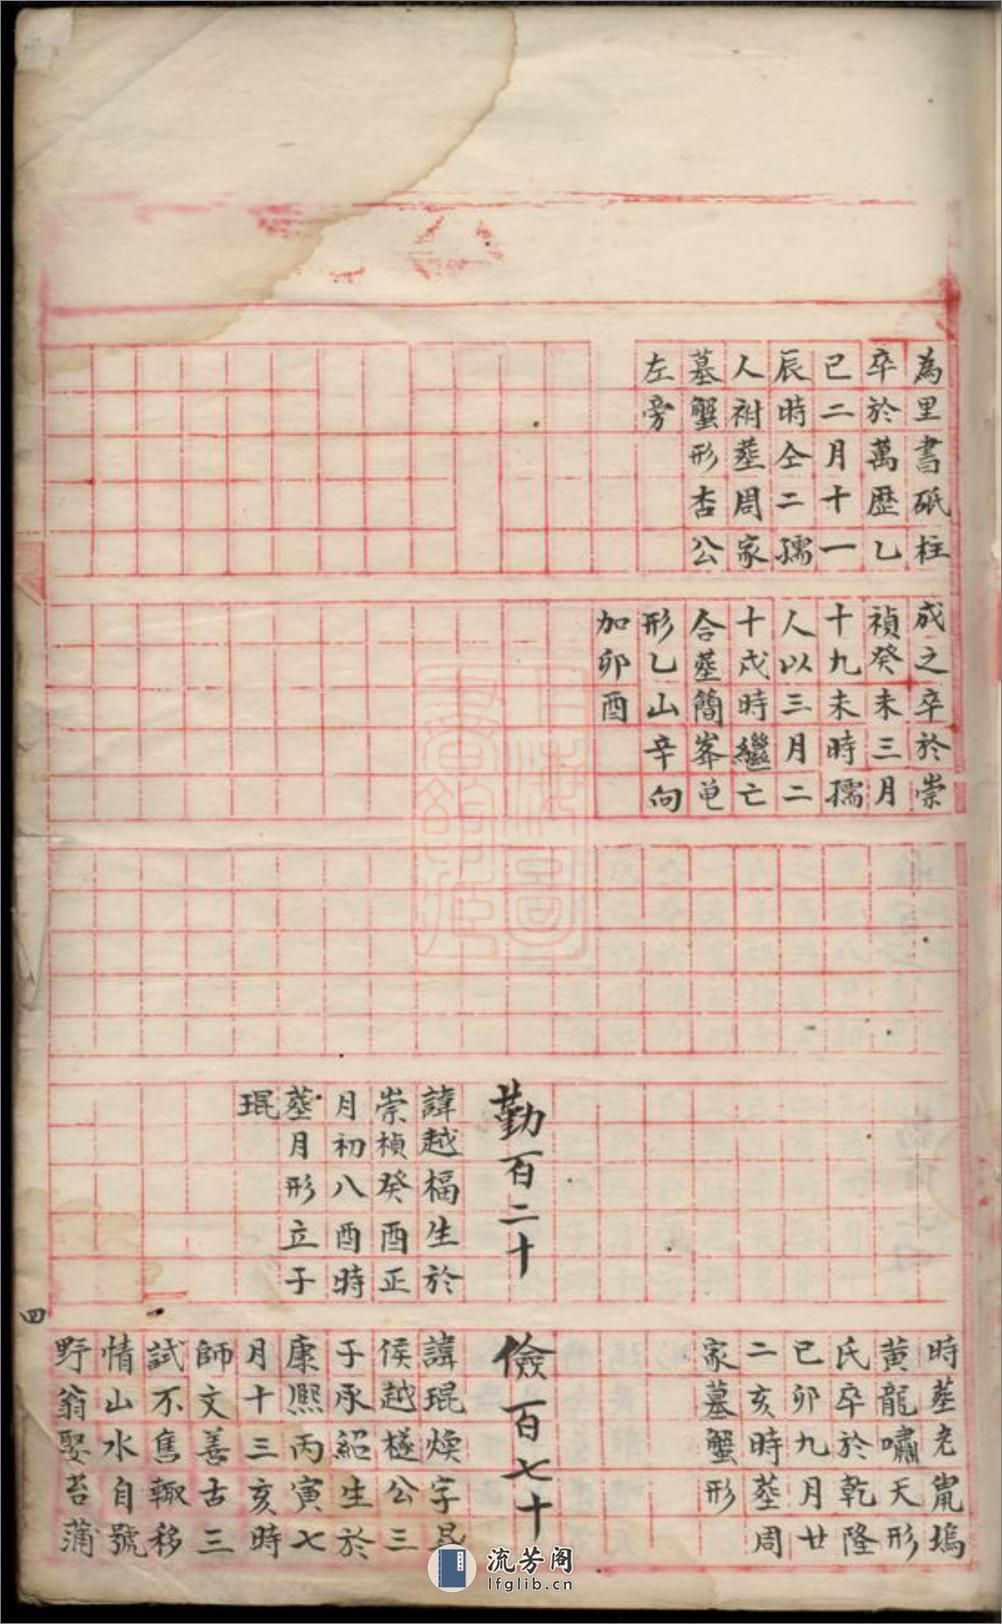 為里書砥柱
卒於萬歷乙
巳二月十一
辰時仝二孺
人祔塟周家
墓蟹形杏公
左旁
成之卒於崇
禎癸未三月
十九未時孺
人以三月二
十戌時繼亡
合塟簡峯皀
形乙山辛向
加卯酉
勤百二十
諱越楅生於
崇楨癸酉正
月初八酉時
塟月形立子
琨
時塟老鼠塢
黃龍嘯天形
氏卒於乾隆
己卯九月廿
二亥時塟周
家墓蟹形
儉百七十
諱琨煥字
侯越檖公三
子承紹生於
康熙丙寅七
月十三亥時
師文善古三
試不售輙移
情山水自號
野翁娶苔蒲
四
流芳阁
lfglib.cn